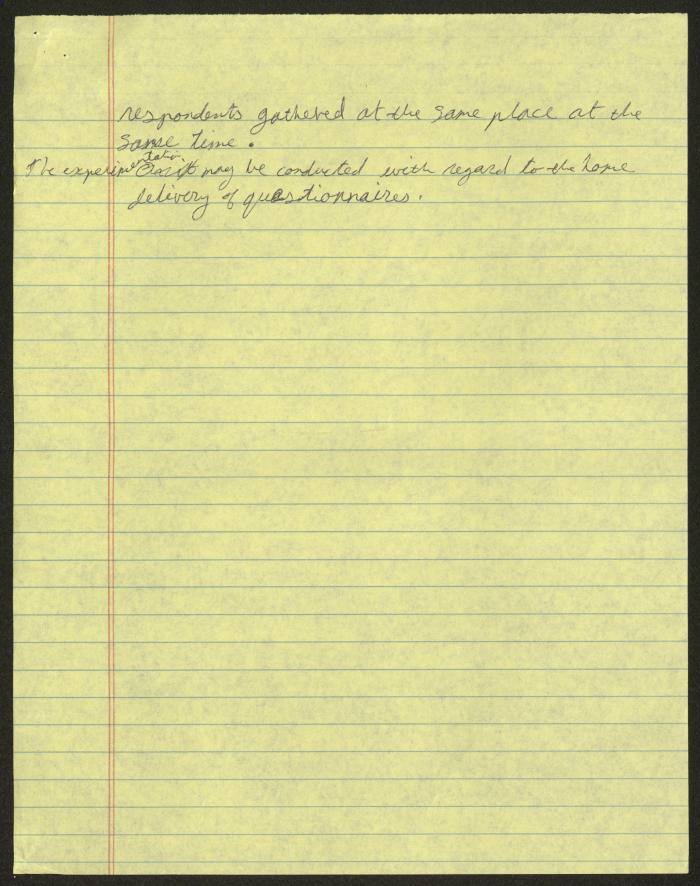 respondents gathered at the same place at the
same time.
The experimentation may be conducted with regard to the home
delivery of questionnaires.